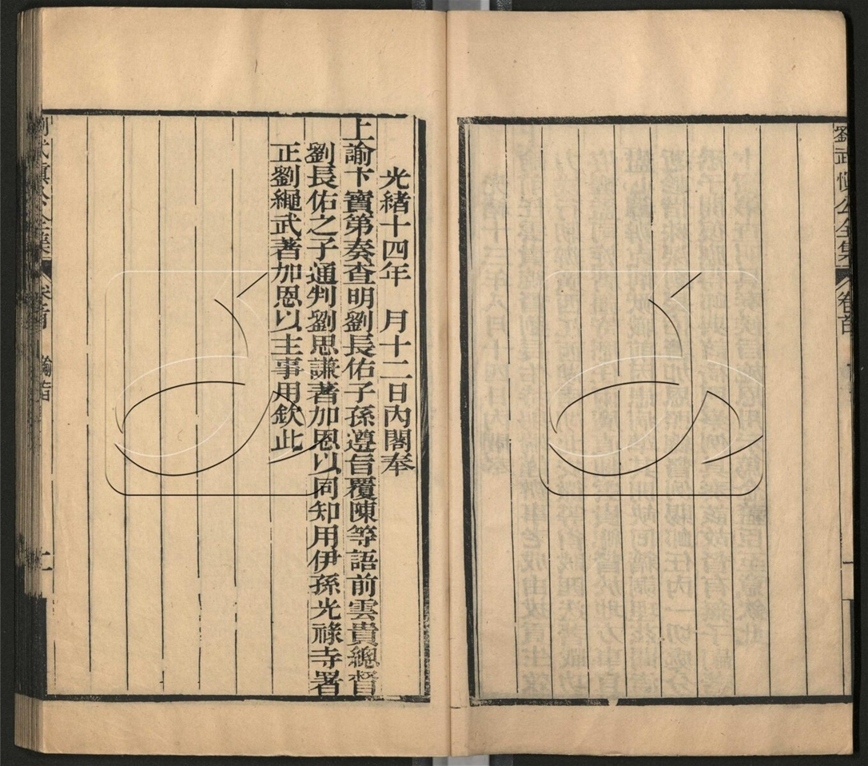 劉武慎公全集
卷首
光緒十四年 月十二日內閣奉
上諭卞寶第奏查明劉長佑子孫遵旨覆陳等語前雲貴總督
劉長佑之子通判劉思謙著加恩以同知用伊孫光祿寺署
正劉繩武著加恩以主事用欽此
劉武慎公全集
卷首
諭旨
二